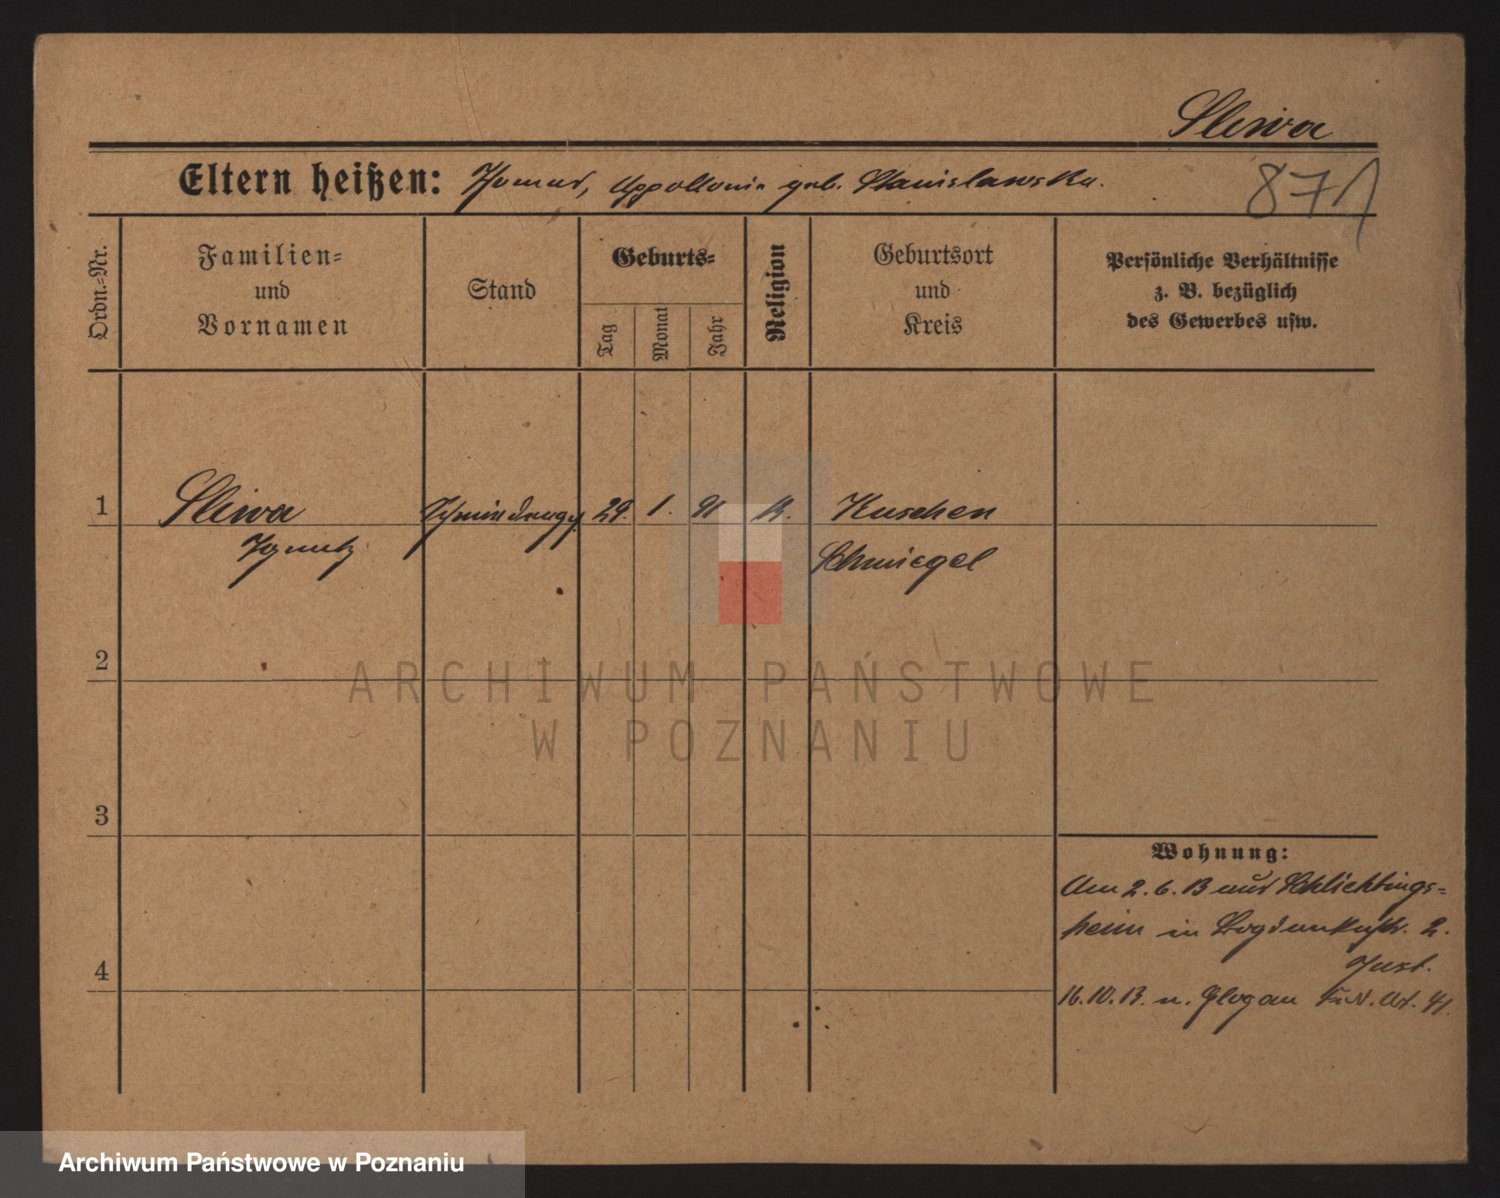 Sliwa
Eltern heißen: Thomas, Appollonia geb. Stanislawska.
871
Ordn.-Nr.
Familien-
und
Vornamen
Stand
Geburts-
Tag
Monat
Jahr
Religion
Geburtsort
und
Kreis
Persönliche Verhältnisse
z. B. bezüglich
des Gewerbes usw.
1 Sliwa 29. 1. 91 K. Kuschen
Ignatz Schmiegel
2
3
4
Wohnung:
Am 2.6.13 aus Schlichtings-
heim in Bogdankastr. 2.
Just.
16.10.13. n. Glogau Art. 41.
ARCHIWUM PAŃSTWOWE
W POZNANIU
Archiwum Państwowe w Poznaniu